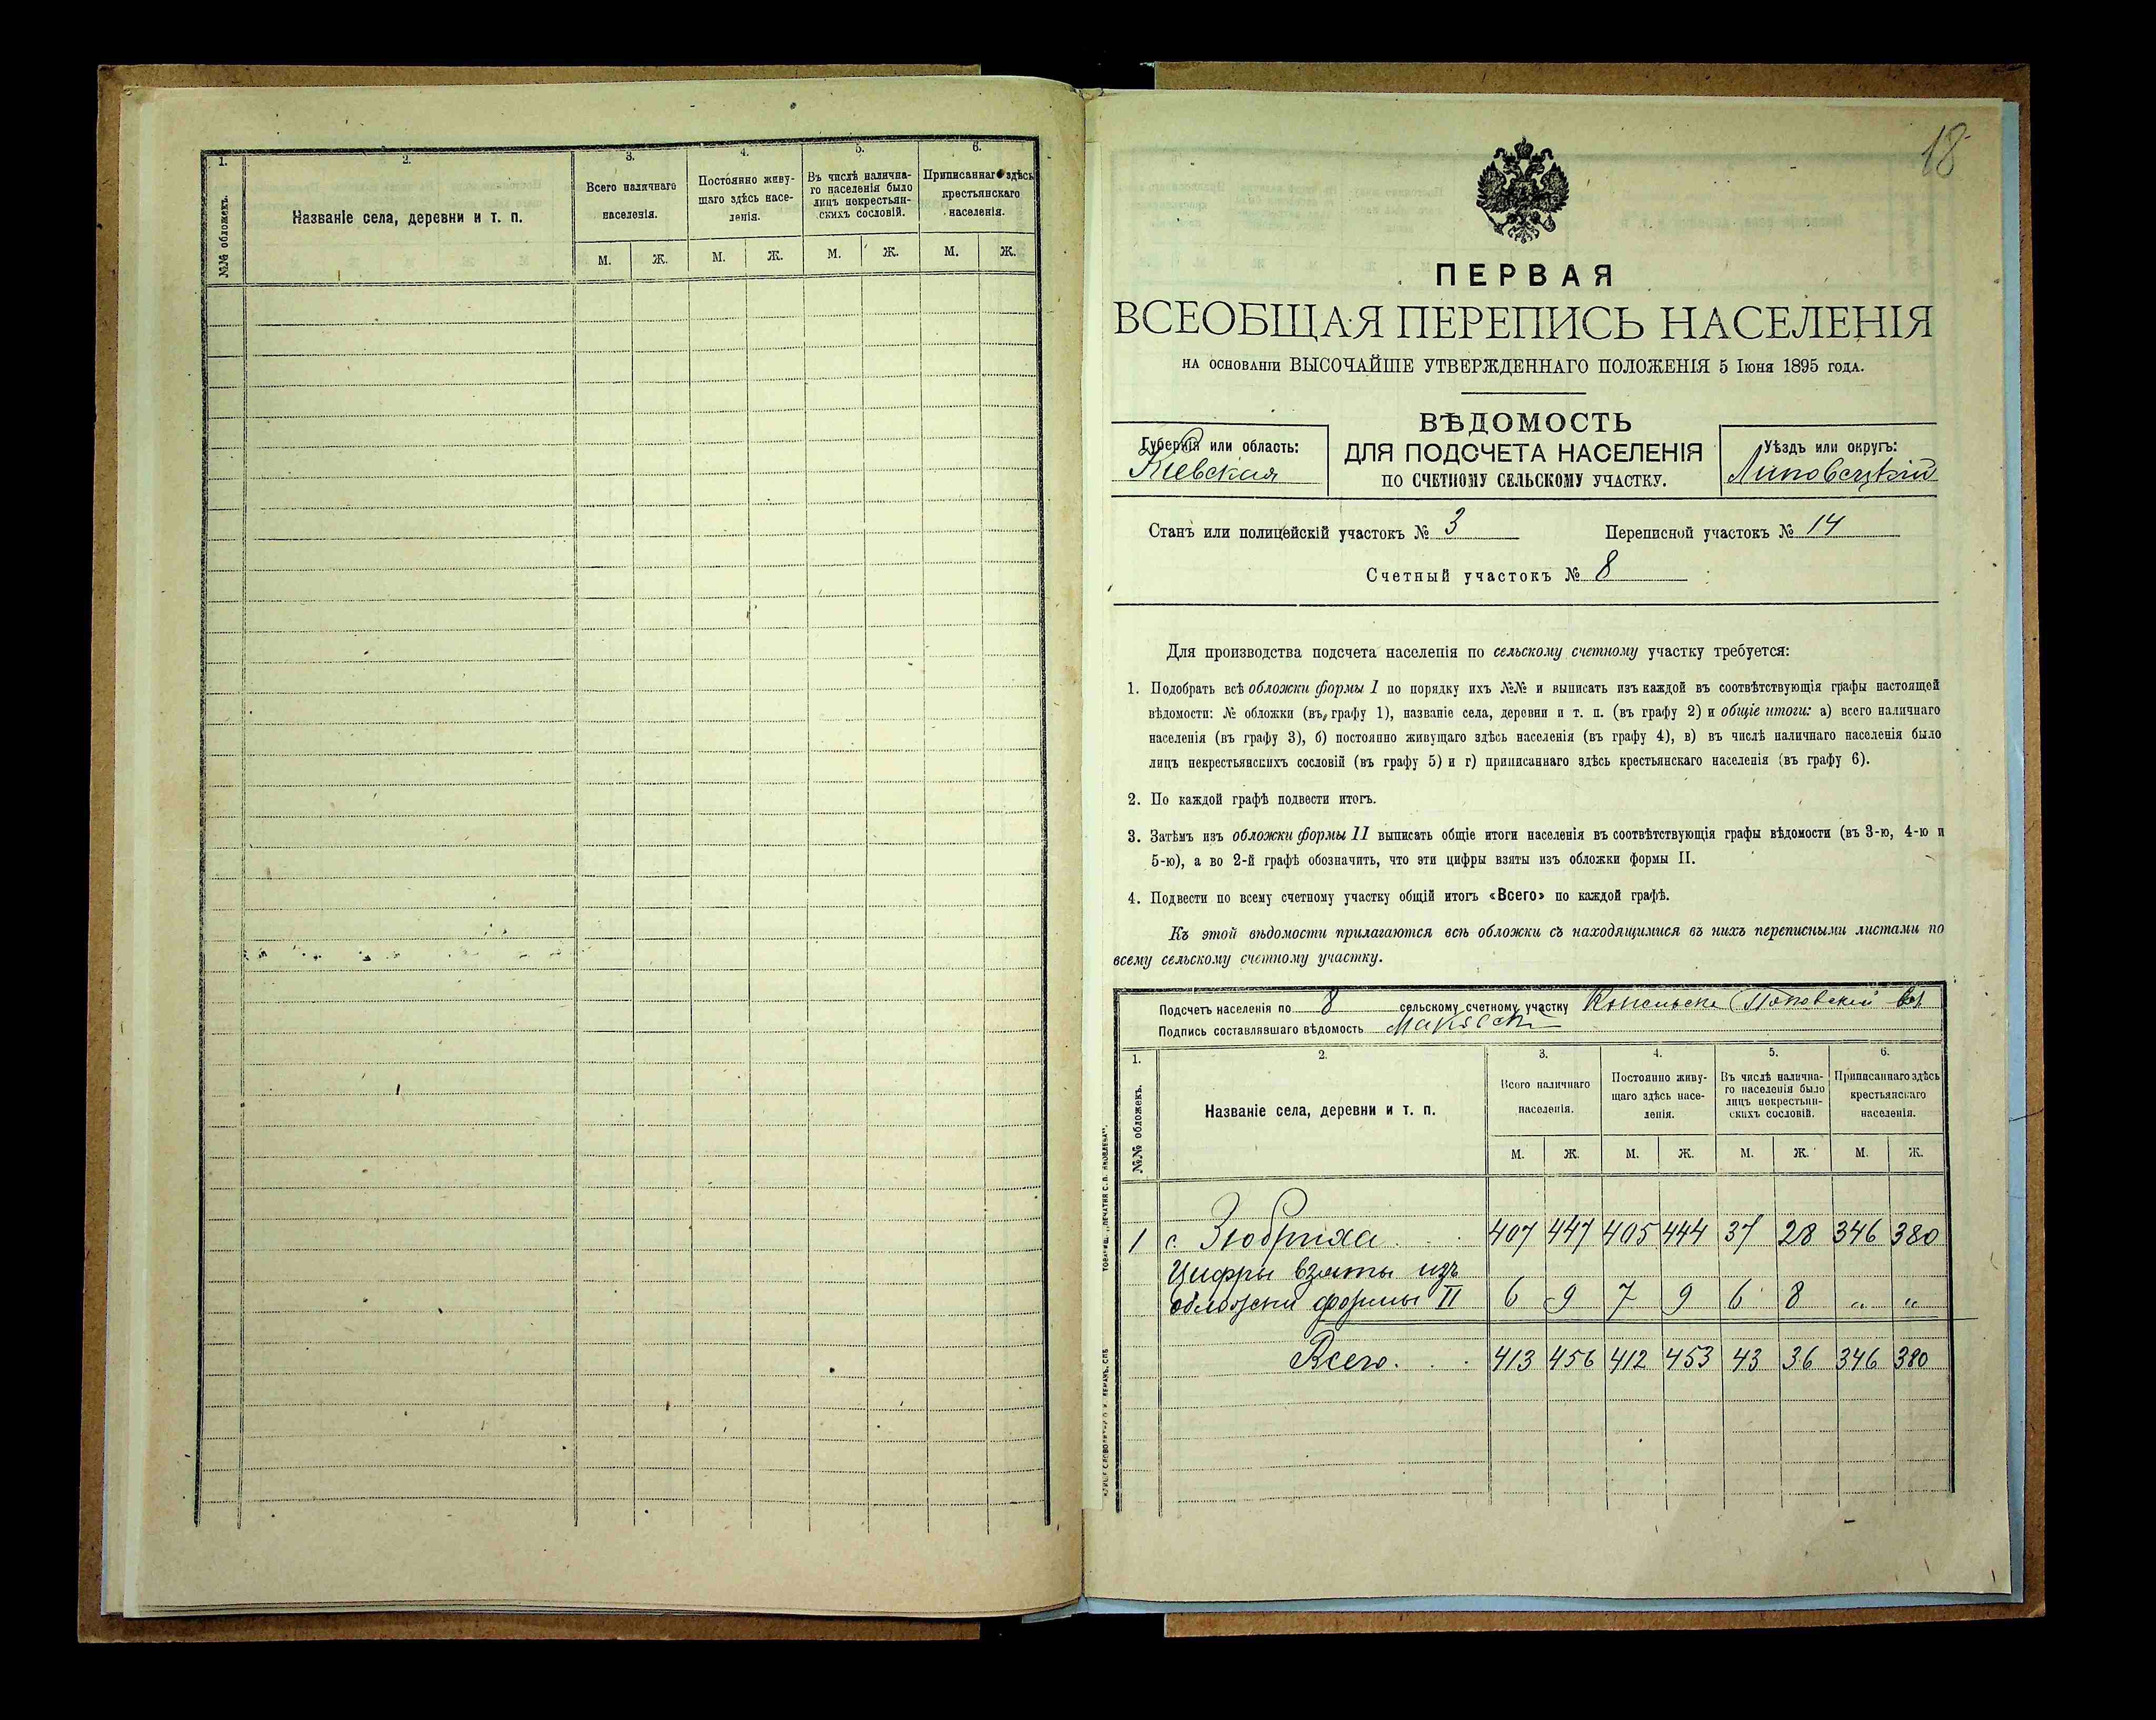 1. 2. 3. 4. 5. 6.
№№ обложекъ.
Названіе села, деревни и т. п.
Всего наличнаго
населенія.
Постоянно живу-
щаго здѣсь насе-
ленія.
Въ числѣ налична-
го населенія было
лицъ некрестьян-
скихъ сословій.
Приписаннаго здѣсь
крестьянскаго
населенія.
М. Ж. М. Ж. М. Ж. М. Ж.
18
ПЕРВАЯ
ВСЕОБЩАЯ ПЕРЕПИСЬ НАСЕЛЕНІЯ
НА ОСНОВАНІИ ВЫСОЧАЙШЕ УТВЕРЖДЕННАГО ПОЛОЖЕНІЯ 5 Іюня 1895 ГОДА.
ВѢДОМОСТЬ
ДЛЯ ПОДСЧЕТА НАСЕЛЕНІЯ
ПО СЧЕТНОМУ СЕЛЬСКОМУ УЧАСТКУ.
Губернія или область:
Кіевская
Уѣздъ или округъ:
Липовецкій
Станъ или полицейскій участокъ № 3 Переписной участокъ № 14
Счетный участокъ № 8
Для производства подсчета населенія по сельскому счетному участку требуется:
1. Подобрать всѣ обложки формы I по порядку ихъ №№ и выписать изъ каждой въ соотвѣтствующія графы настоящей
вѣдомости: № обложки (въ графу 1), названіе села, деревни и т. п. (въ графу 2) и общіе итоги: а) всего наличнаго
населенія (въ графу 3), б) постоянно живущаго здѣсь населенія (въ графу 4), в) въ числѣ наличнаго населенія было
лицъ некрестьянскихъ сословій (въ графу 5) и г) приписаннаго здѣсь крестьянскаго населенія (въ графу 6).
2. По каждой графѣ подвести итогъ.
3. Затѣмъ изъ обложки формы II выписать общіе итоги населенія въ соотвѣтствующія графы вѣдомости (въ 3-ю, 4-ю и
5-ю), а во 2-й графѣ обозначить, что эти цифры взяты изъ обложки формы II.
4. Подвести по всему счетному участку общій итогъ «Всего» по каждой графѣ.
Къ этой вѣдомости прилагаются всѣ обложки съ находящимися въ нихъ переписными листами по
всему сельскому счетному участку.
Подсчетъ населенія по 8 сельскому счетному участку
Подпись составлявшаго вѣдомость
1. 2. 3. 4. 5. 6.
№№ обложекъ.
Названіе села, деревни и т. п.
Всего наличнаго
населенія.
Постоянно живу-
щаго здѣсь насе-
ленія.
Въ числѣ налична-
го населенія было
лицъ некрестьян-
скихъ сословій.
Приписаннаго здѣсь
крестьянскаго
населенія.
М. Ж. М. Ж. М. Ж. М. Ж.
1 с. Зюбриха . . . 407 447 405 444 37 28 346 380
Цифры взяты изъ
обложки формы II 6 9 7 9 6 8 " "
Всего . . . 413 456 412 453 43 36 346 380